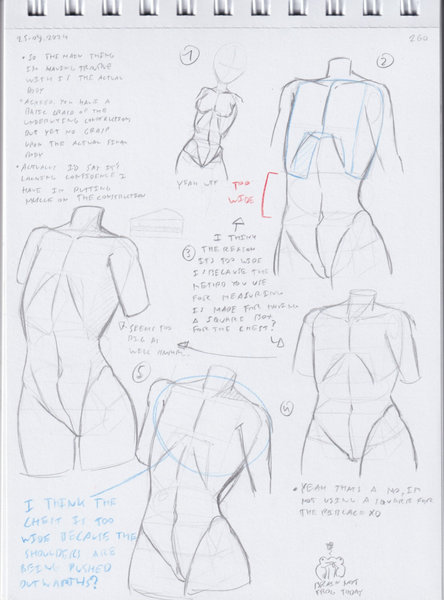 25-09.2024
260
• SO THE MAIN THING
I'M HAVING TROUBLE
WITH IS THE ACTUAL
BODY
• AGREED. YOU HAVE A
BASIC GRASP OF THE
UNDERLYING CONSTRUCTION
BUT YET NO GRASP
UPON THE ACTUAL FINAL
BODY
• ACTUALLY I'D SAY IT'S
LACKING CONFIDENCE I
HAVE IN PUTTING
MUSCLE ON THE CONSTRUCTION
1
YEAH WTF
2
TOO
WIDE
3
I THINK
THE REASON
IT'S TOO WIDE
IS BECAUSE THE
METHOD YOU USE
FOR MEASURING
IS MADE FOR HAVING
A SQUARE BOX
FOR THE CHEST?
SEEMS TOO
BIG AS
WELL
4
• YEAH THAT'S A NO, I'M
NOT USING A SQUARE FOR
THE RIBCAGE XD
5
I THINK THE
CHEST IS TOO
WIDE BECAUSE THE
SHOULDERS ARE
BEING PUSHED
OUTWARDS?
FROG TODAY